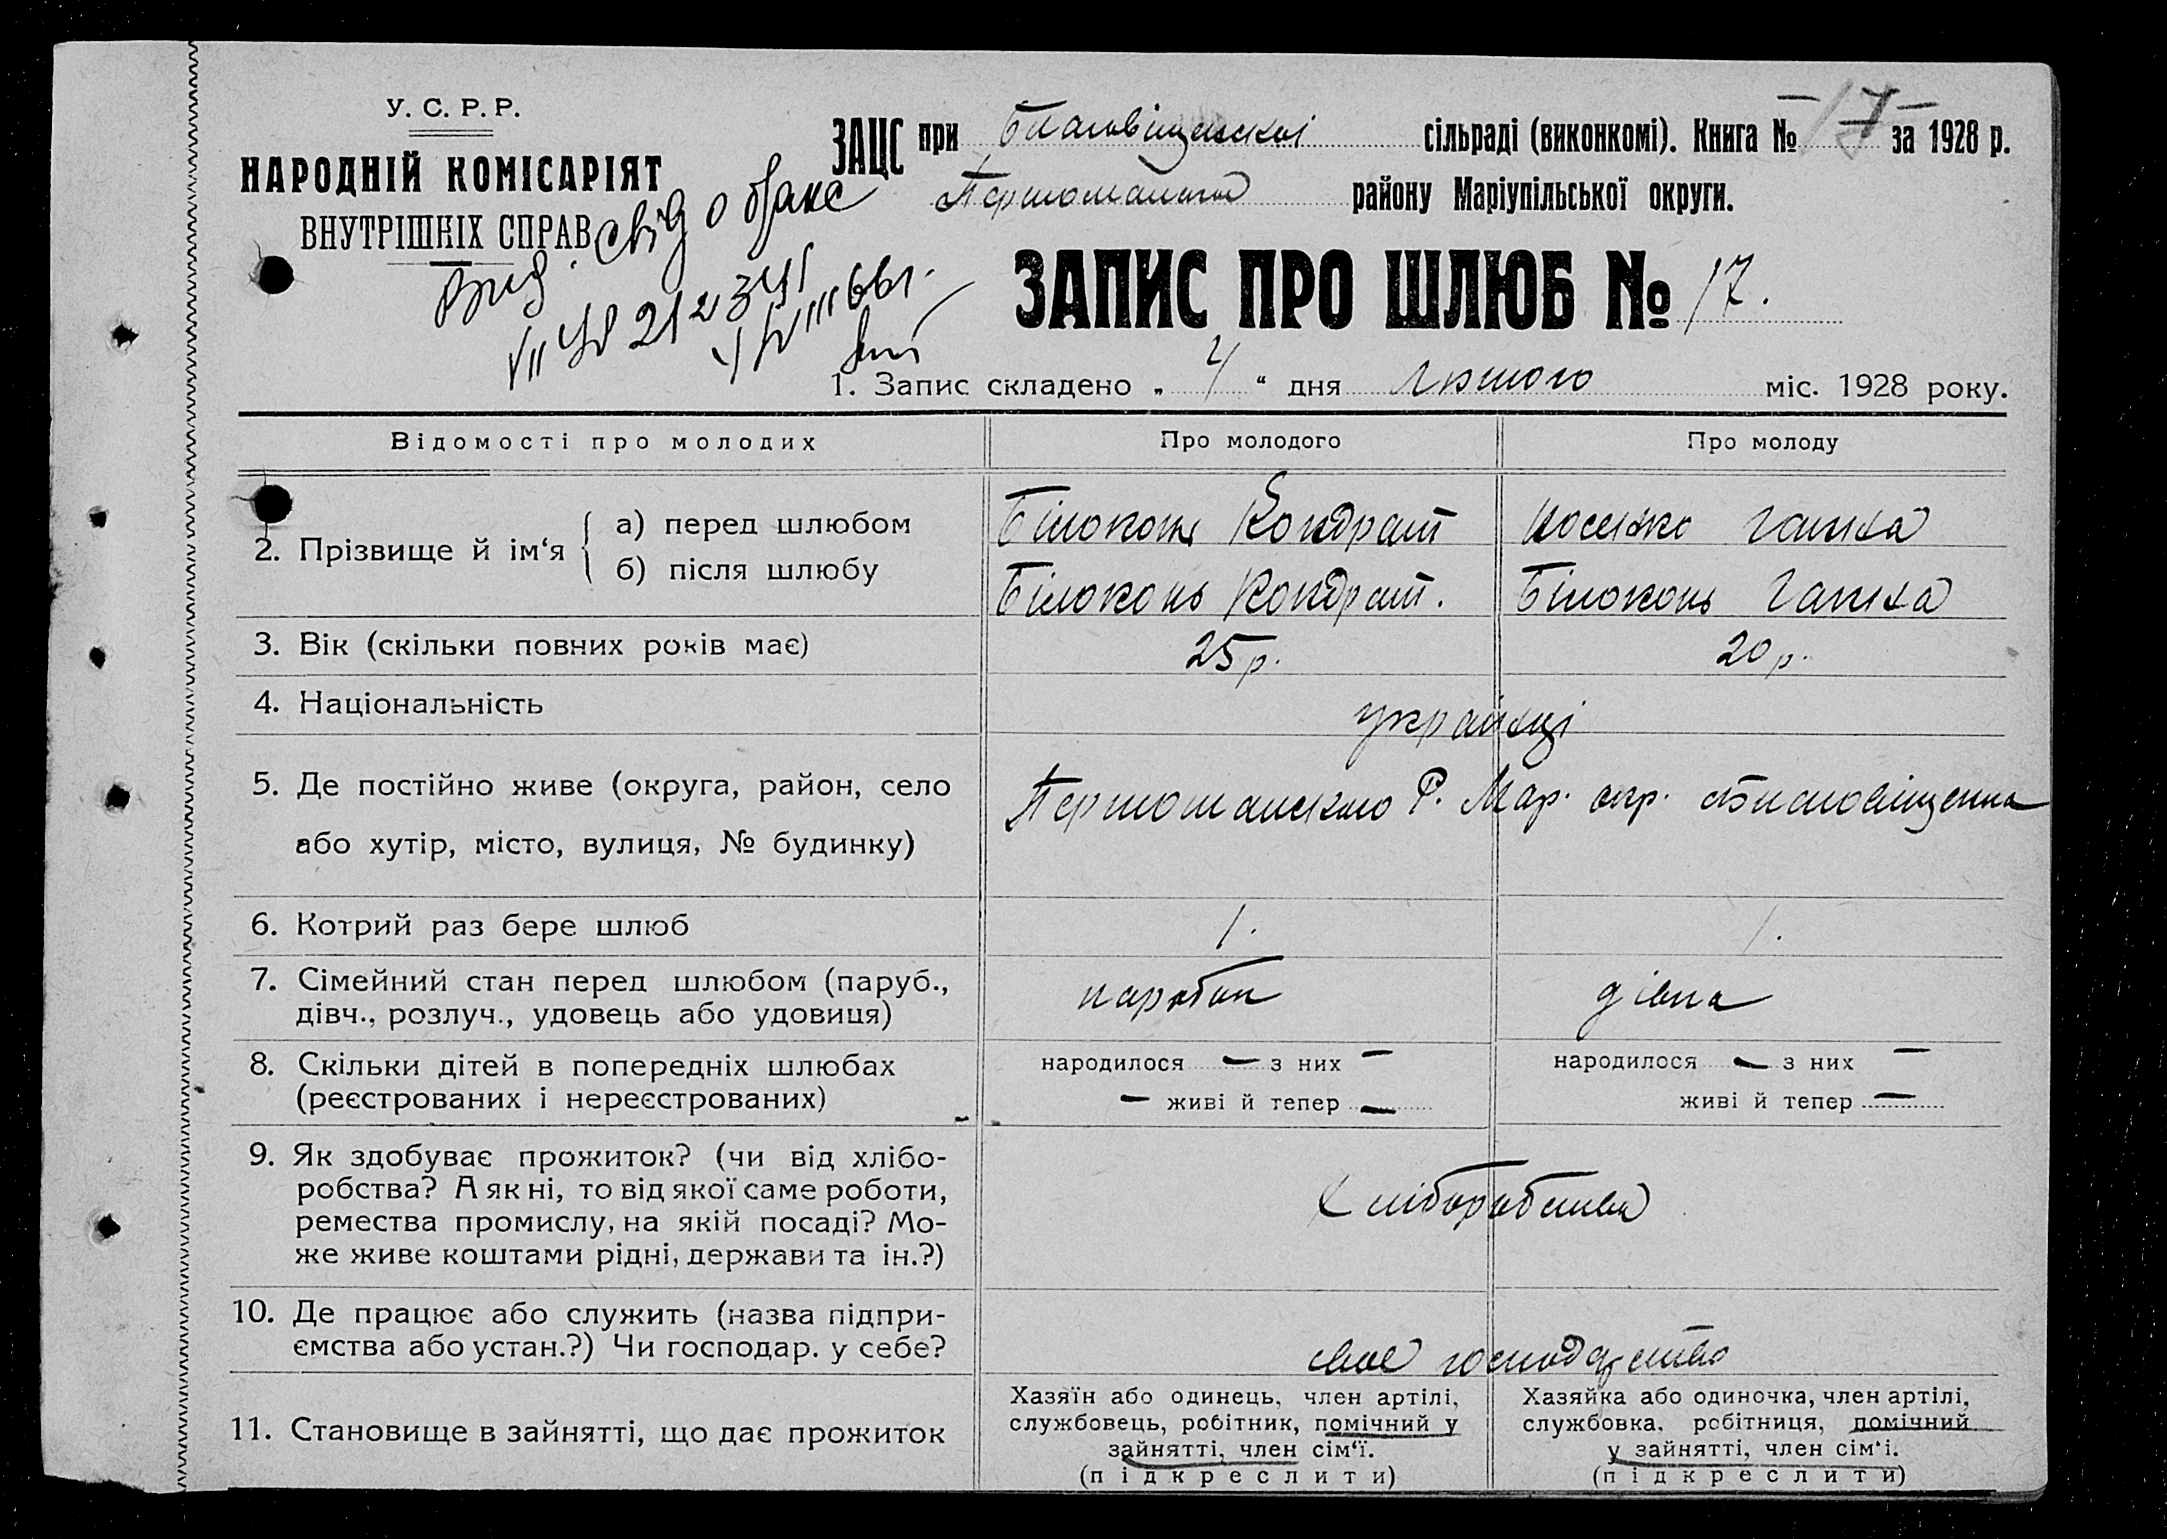 У. С. Р. Р.
НАРОДНІЙ КОМІСАРІЯТ
ВНУТРІШНІХ СПРАВ
ЗАЦС при Благовіщенскі сільраді (виконкомі). Книга № 17 за 1928 р.
району Маріупільської округи.
Вид. свід о браке
ЗАПИС ПРО ШЛЮБ № 17.
1. Запис складено „ 4 “ дня Лютого міс. 1928 року.
Відомості про молодих Про молодого Про молоду
2. Прізвище й ім‘я
а) перед шлюбом Білоконь Кондрат Носенко Ганна
б) після шлюбу Білоконь Кондрат. Білоконь Ганна
3. Вік (скільки повних років має) 25 р. 20 р.
4. Національність українці
5. Де постійно живе (округа, район, село
Р. Мар. окр.
або хутір, місто, вулиця, № будинку)
6. Котрий раз бере шлюб 1. 1.
7. Сімейний стан перед шлюбом (паруб.,
дівч., розлуч., удовець або удовиця)
паробок дівка
8. Скільки дітей в попередніх шлюбах
(реєстрованих і нереєстрованих)
народилося — з них —
— живі й тепер —
народилося — з них —
живі й тепер —
9. Як здобуває прожиток? (чи від хлібо-
робства? А як ні, то від якої саме роботи,
ремества промислу, на якій посаді? Мо-
же живе коштами рідні, держави та ін.?)
Хліборобства
10. Де працює або служить (назва підпри-
ємства або устан.?) Чи господар. у себе?
свое господарство
11. Становище в зайнятті, що дає прожиток
Хазяїн або одинець, член артілі,
службовець, робітник, помічний у
зайнятті, член сім‘ї.
(підкреслити)
Хазяйка або одиночка, член артілі,
службовка, робітниця, помічний
у зайнятті, член сім‘і.
(підкреслити)